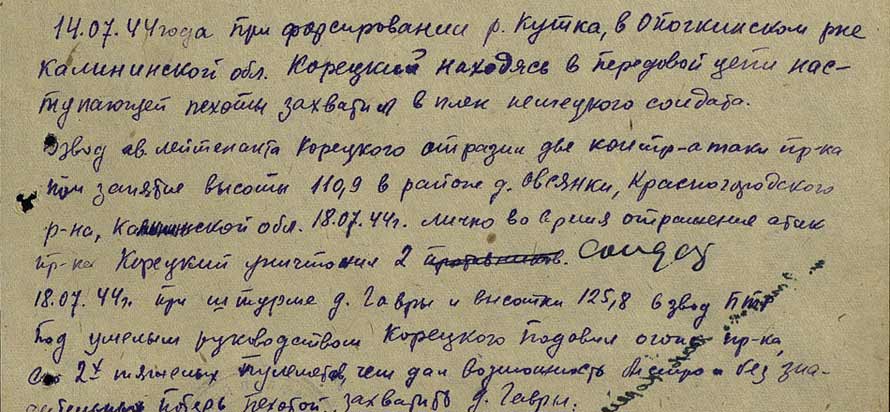 14.07.44 года при форсировании р. Кутка, в Опочкинском р-не
Калининской обл. Корецкий находясь в передовой цепи нас-
тупающей пехоты захватил в плен немецкого солдата.
Взвод лейтенанта Корецкого отразил две контр-атаки пр-ка
при занятие высоты 110,9 в районе д. Овсянки, Красногородского
р-на, Калининской обл. 18.07.44г. лично во время отражения атак
пр-ка Корецкий уничтожил 2 противников. солдат
18.07.44г. при штурме д. Гавры и высотки 125,8 взвод ПТР
под умелым руководством Корецкого подавил огонь пр-ка,
2х тяжелых пулеметов, чем дал возможность быстро и без зна-
чительных потерь пехотой захватить д. Гавры.